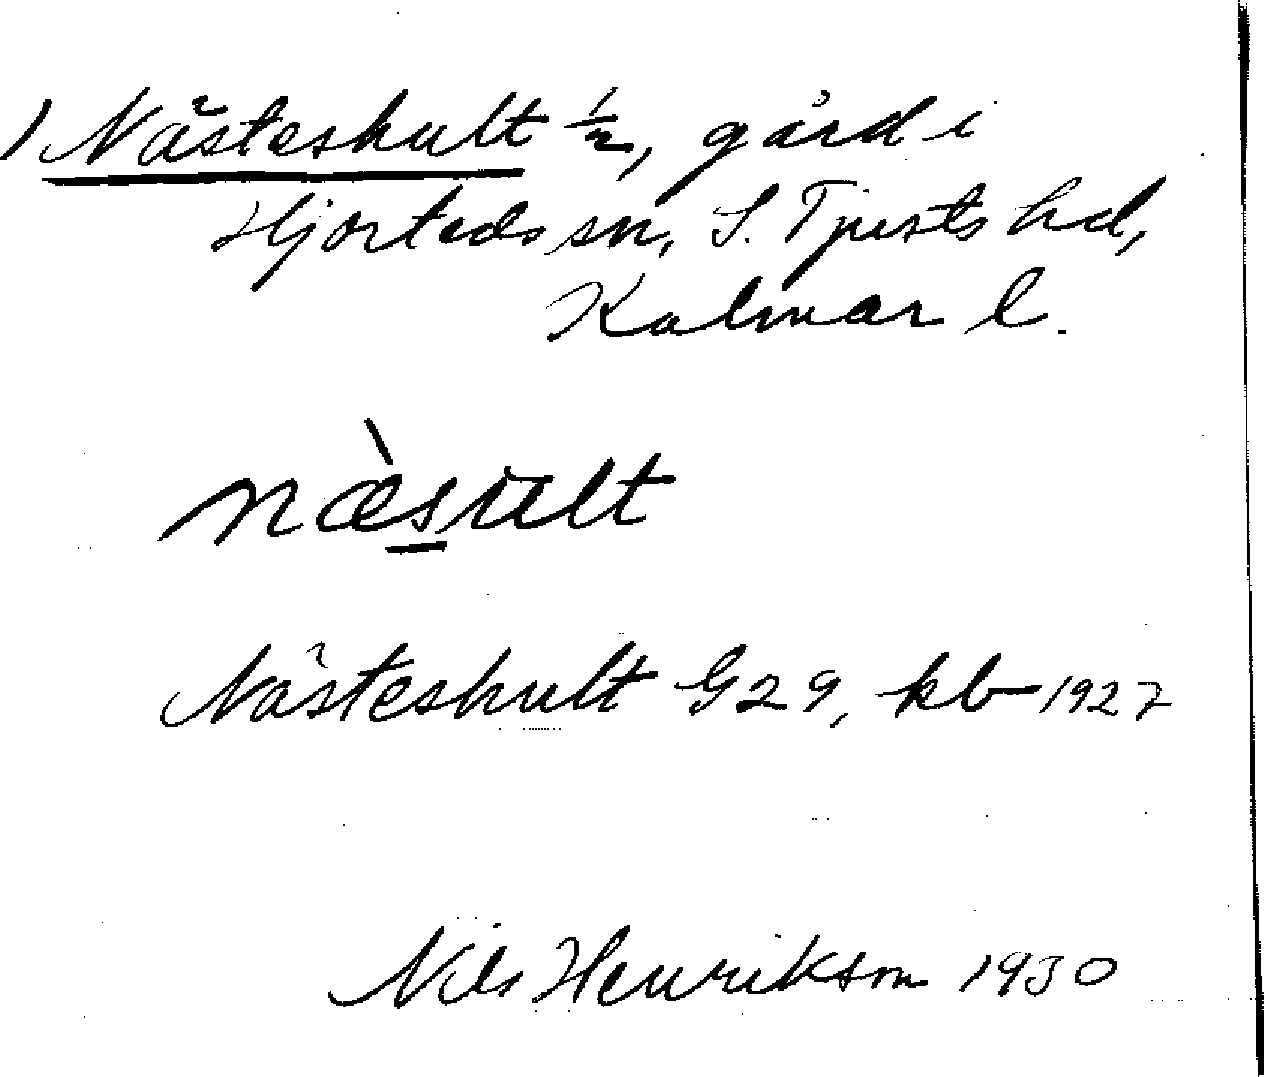 1) Nästeshult 1/2, gård i
Hjorteds sn, S. Tjusts hd,
Kalmar l.
næ̀sult
Nästeshult G29, kb 1927
Nils Henrikson 1930